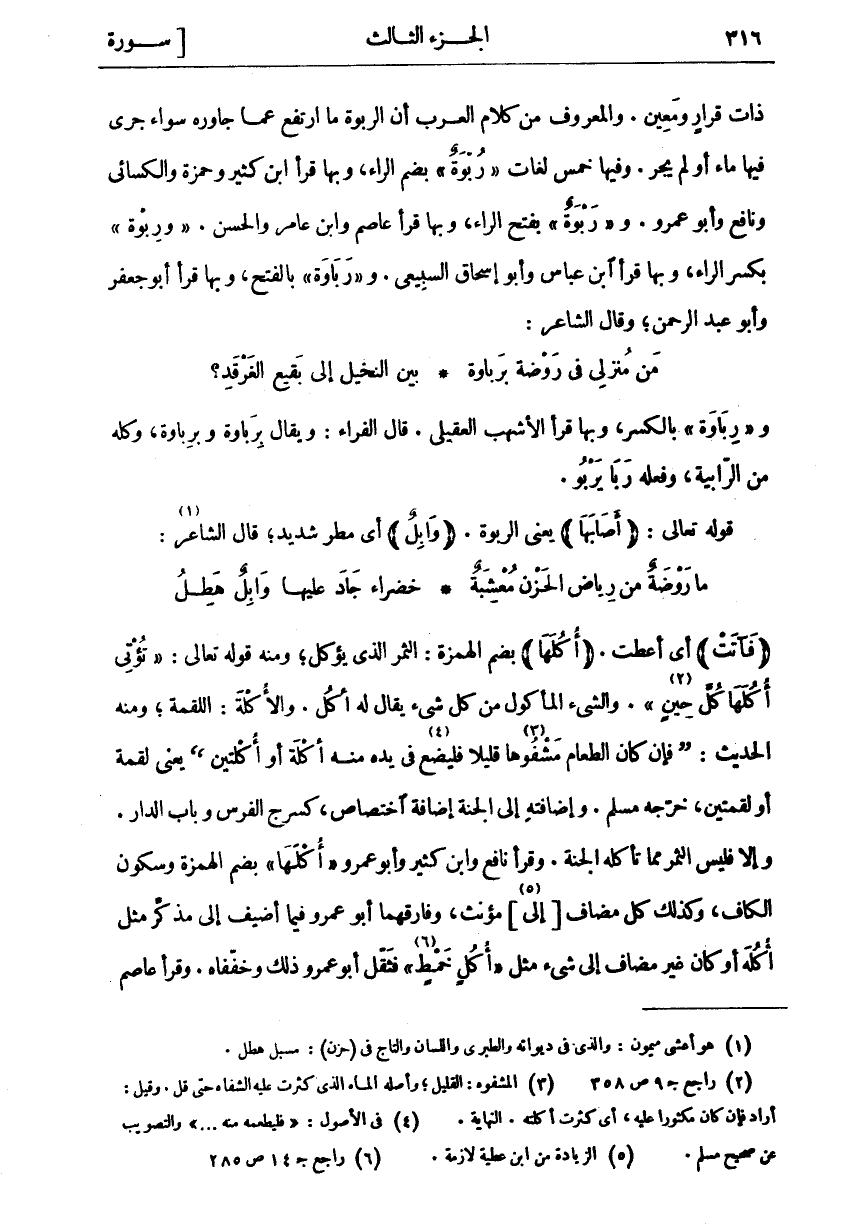 ٣١٦ الجـــزء الثـالث [ ســـورة
ذات قرارٍ ومَعِين . والمعروف من كلام العـرب أن الربوة ما ارتفع عمـا جاوره سواء جرى
فيها ماء أو لم يجر . وفيها خمس لغات « رُبْوَةٌ » بضم الراء، وبها قرأ ابن كثير وحمزة والكسائى
ونافع وأبو عمرو . و « رَبْوَةٌ » بفتح الراء، وبها قرأ عاصم وابن عامر والحسن . « ورِبْوة »
بكسر الراء، وبها قرأ آبن عباس وأبو إسحاق السبِيعى . و «رَبَاوَة» بالفتح، وبها قرأ أبو جعفر
وأبو عبد الرحمن؛ وقال الشاعر :
مَن مُنزلِى فى رَوْضة بَرباوة * بين النخيل إلى بَقيع الغَرْقَدِ؟
و « رِبَاوَة » بالكسر، وبها قرأ الأشهب العقيلى . قال الفراء : ويقال بِرَباوة وبرِباوة، وكله
من الرّابية، وفعله رَبَا يَرْبُو .
قوله تعالى : ﴿ أَصَابَهَا ﴾ يعنى الربوة . ﴿ وَابِلٌ ﴾ أى مطر شديد؛ قال الشاعر (١) :
ما رَوْضَةٌ من رِياض الحَزْن مُعْشِبَةٌ * خضراء جَادَ عليها وَابِلٌ هَطِـلُ
﴿ فَآتَتْ ﴾ أى أعطت . ﴿ أُكُلَهَا ﴾ بضم الهمزة : الثمر الذى يؤكل؛ ومنه قوله تعالى : « تُؤْتِى
أُكُلَهَا كُلَّ حِينٍ (٢) » . والشىء المأكول من كل شىء يقال له أُكُل . والأُكْلَة : اللقمة ؛ ومنه
الحديث : ” فإن كان الطعام مَشْفُوها (٣) قليلا فليضع (٤) فى يده منـه أُكْلَة أو أُكْلتين “ يعنى لقمة
أو لقمتين، خرّجه مسلم . وإضافته إلى الجنة إضافة آختصاص، كسرج الفرس وباب الدار .
وإلا فليس الثمر مما تأكله الجنة . وقرأ نافع وابن كثير وأبو عمرو « أُكْلَهَا » بضم الهمزة وسكون
الكاف، وكذلك كل مضاف [ إلى (٥) ] مؤنث، وفارقهما أبو عمرو فيما أضيف إلى مذكّر مثل
أُكُلَه أو كان غير مضاف إلى شىء مثل «أُكُلٍ خَمْطٍ (٦)» فثقّل أبو عمرو ذلك وخفّفاه . وقرأ عاصم
(١) هو أعشى ميمون : والذى فى ديوانه والطبرى واللسان والتاج فى (حزن) : مسبل هطل .
(٢) راجع جـ ٩ ص ٣٥٨ (٣) المشفوه : القليل ؛ وأصله المـاء الذى كثرت عليه الشفاه حتى قل . وقيل :
أراد فإن كان مكثورا عليه ، أى كثرت أكلته . النهاية . (٤) فى الأصول : « فليطعمه منه ... » والتصويب
عن صحيح مسلم . (٥) الزيادة من ابن عطية لازمة . (٦) راجع جـ ١٤ ص ٢٨٥